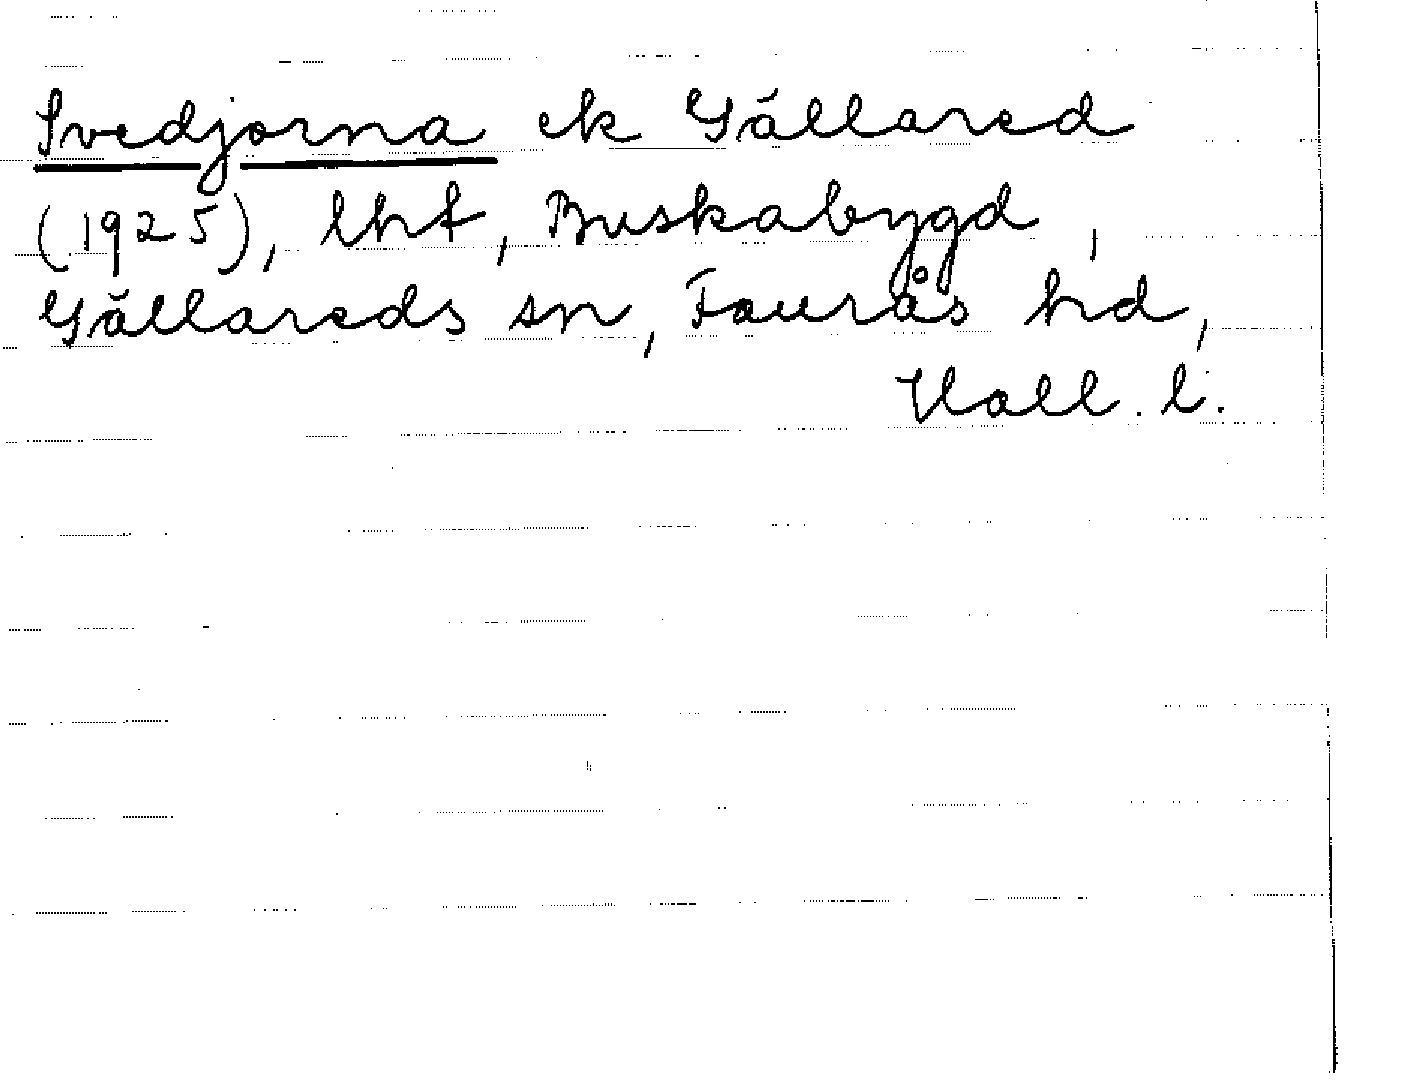 Svedjorna ek Gällared
(1925), lht, Buskabygd,
Gällareds sn, Faurås hd,
Hall. l.